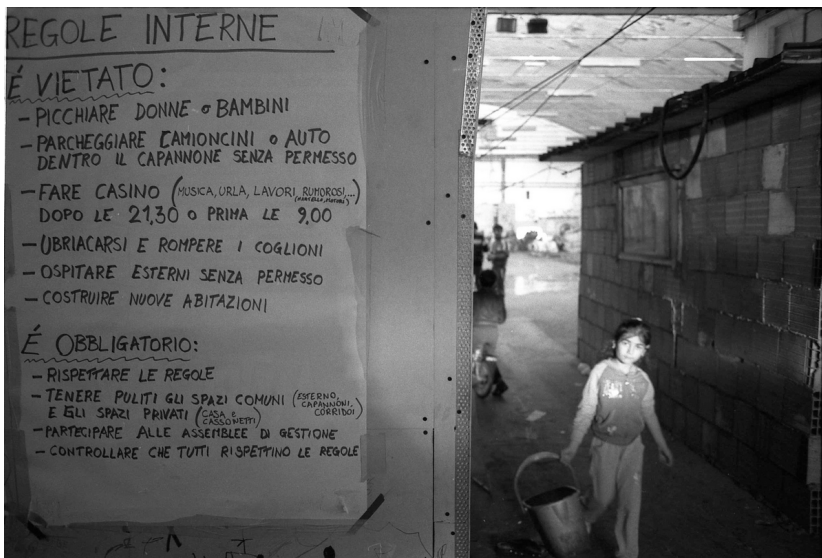 REGOLE INTERNE
É VIETATO:
- PICCHIARE DONNE o BAMBINI
- PARCHEGGIARE CAMIONCINI o AUTO
DENTRO IL CAPANNONE SENZA PERMESSO
- FARE CASINO (MUSICA, URLA, LAVORI RUMOROSI,...)
DOPO LE 21,30 O PRIMA LE 9,00
- UBRIACARSI E ROMPERE I COGLIONI
- OSPITARE ESTERNI SENZA PERMESSO
- COSTRUIRE NUOVE ABITAZIONI
É OBBLIGATORIO:
- RISPETTARE LE REGOLE
- TENERE PULITI GLI SPAZI COMUNI (ESTERNO, CAPANNONI, CORRIDOI)
E GLI SPAZI PRIVATI (CASA E CASSONETTI)
- PARTECIPARE ALLE ASSEMBLEE DI GESTIONE
- CONTROLLARE CHE TUTTI RISPETTINO LE REGOLE